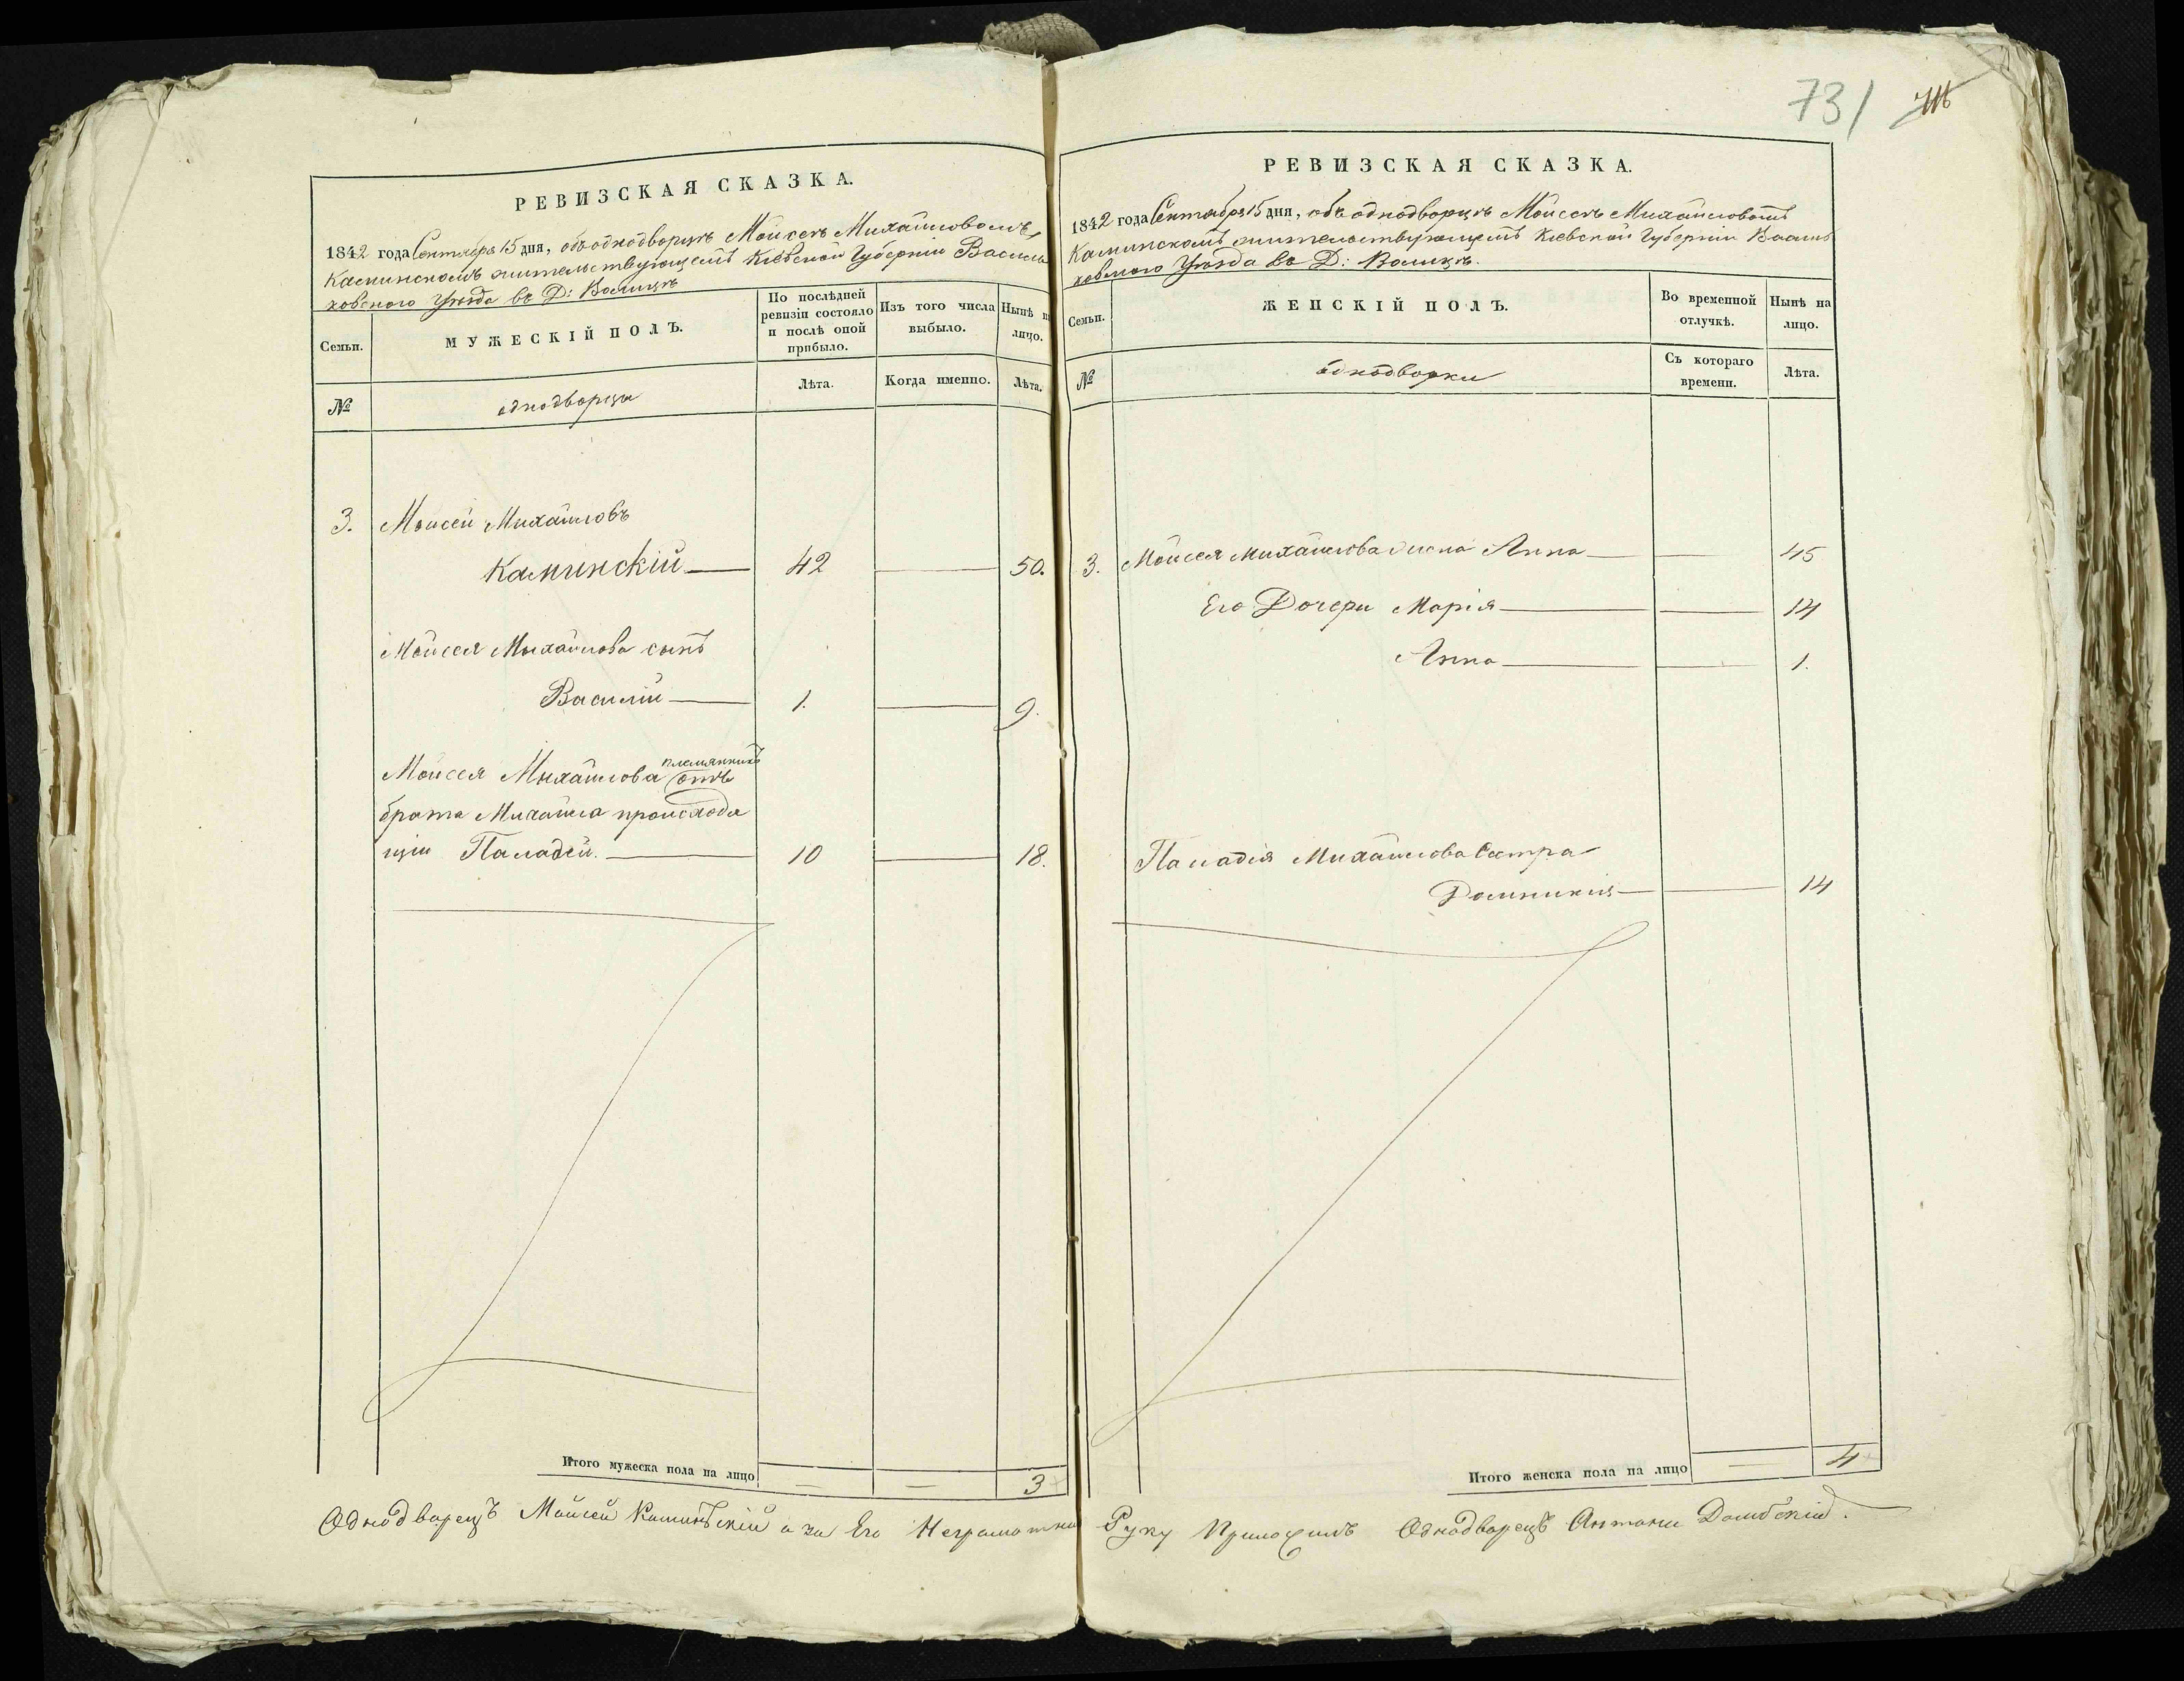 РЕВИЗСКАЯ СКАЗКА.
1842 года Сентября 15 дня, объ однодворцѣ Мойсеѣ Михайловомъ
Каминскомъ жительствующемъ Кіевской Губерніи Василь
ковскаго Уѣзда въ Д: Волицѣ
Семьи.
МУЖЕСКІЙ ПОЛЪ.
По послѣдней
ревизіи состояло
и послѣ оной
прибыло.
Изъ того числа
выбыло.
Нынѣ н
лицо.
№
однодворцы
Лѣта.
Когда именно.
Лѣта.
3. Мойсей Михайловъ
Каминскій 42 50.
Мойсея Михайлова сынъ
Василій 1. 9.
племянникъ
Мойсея Михайлова отъ
брата Михайла происходя
щій Паладей. 10 18.
Итого мужеска пола на лицо 3
731
РЕВИЗСКАЯ СКАЗКА.
1842 года Сентября 15 дня, объ однодворцѣ Мойсеѣ Михайловомъ
Каминскомъ жительствующемъ Кіевской Губерніи Василь
ковскаго Уѣзда въ Д: Волицѣ.
Семьи.
ЖЕНСКІЙ ПОЛЪ.
Во временной
отлучкѣ.
Нынѣ на
лицо.
№
однодворки
Съ котораго
времени.
Лѣта.
3. Мойсея Михайлова жена Анна 45
Его Дочери Марія 14
Анна 1.
Паладія Михайлова Сестра
Домникія 14
Итого женска пола на лицо 4
Однодворецъ Мойсей Каминскій а за Его Неграмотна Руку Приложилъ Однодворецъ Антони Домбскій.